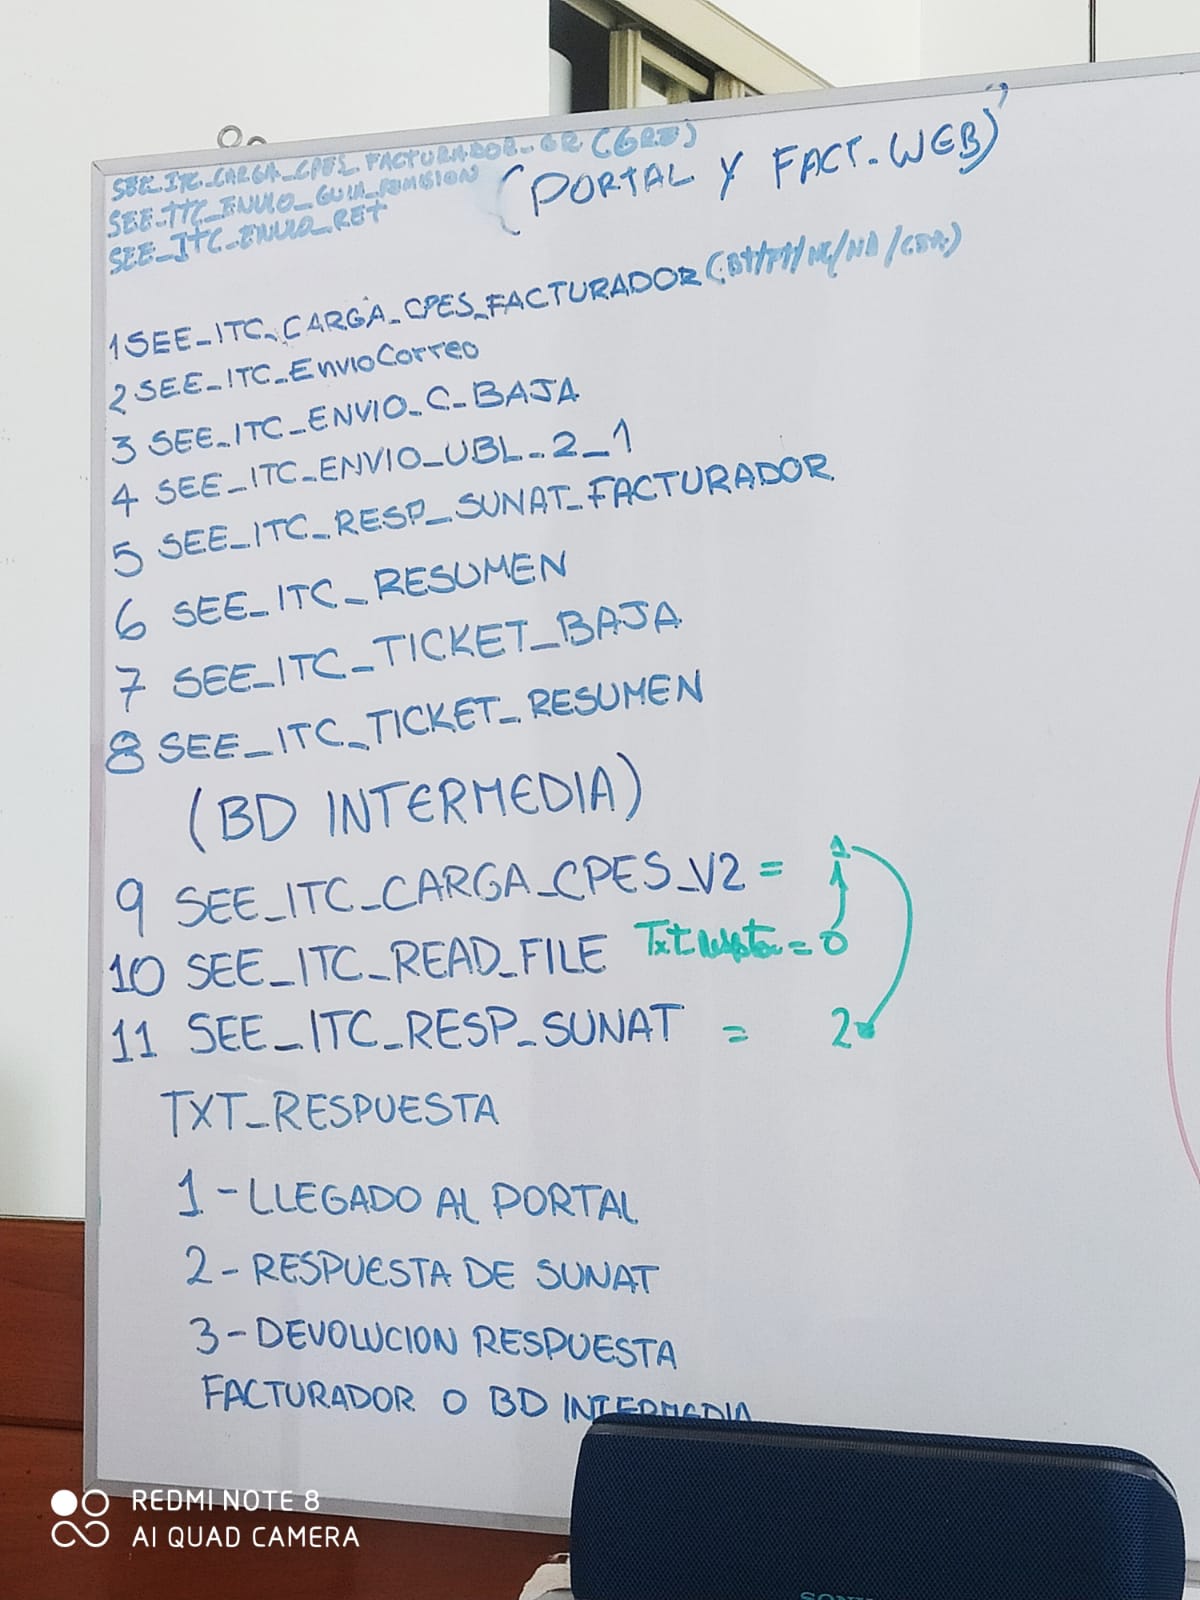 SEE_ITC_CARGA_CPES_FACTURADOR_GR (GRE)
SEE_ITC_ENVIO_GUIA_REMISION
SEE_ITC_ENVIO_RET
(PORTAL Y FACT_WEB)
1 SEE_ITC_CARGA_CPES_FACTURADOR
2 SEE_ITC_EnvioCorreo
3 SEE_ITC_ENVIO_C_BAJA
4 SEE_ITC_ENVIO_UBL_2_1
5 SEE_ITC_RESP_SUNAT_FACTURADOR
6 SEE_ITC_RESUMEN
7 SEE_ITC_TICKET_BAJA
8 SEE_ITC_TICKET_RESUMEN
(BD INTERMEDIA)
9 SEE_ITC_CARGA_CPES_V2 = 1
10 SEE_ITC_READ_FILE Txt = 0
11 SEE_ITC_RESP_SUNAT = 2
TXT_RESPUESTA
1 - LLEGADO AL PORTAL
2 - RESPUESTA DE SUNAT
3 - DEVOLUCION RESPUESTA
FACTURADOR O BD INTERMEDIA
REDMI NOTE 8
AI QUAD CAMERA
SONY